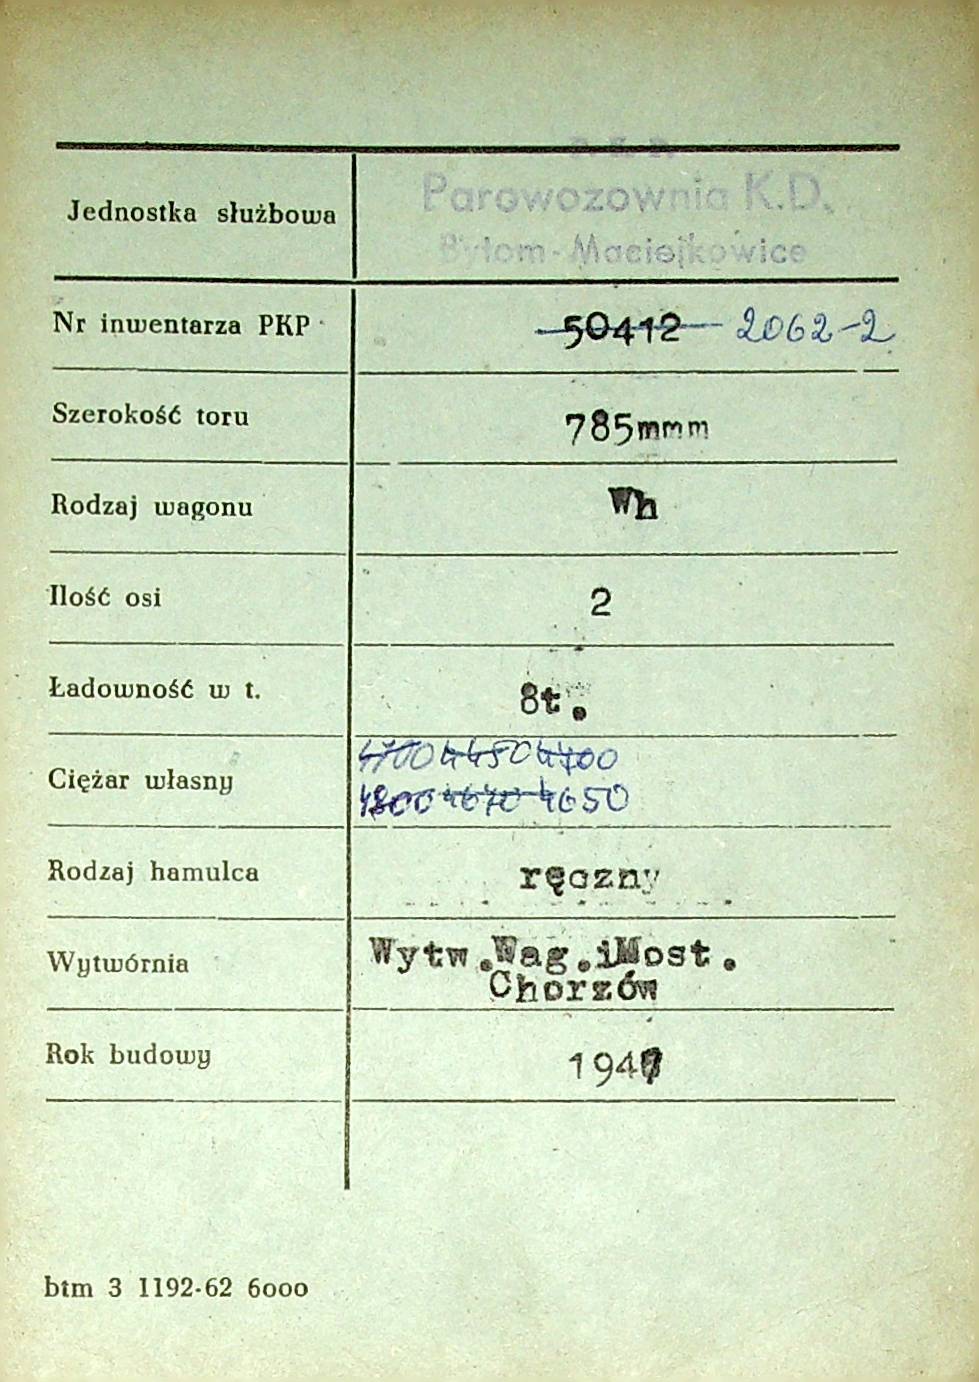 P. K. P.
Jednostka służbowa Parowozownia K.D.
Bytom-Maciejkowice
Nr inwentarza PKP 50412 2062-2
Szerokość toru 785mmm
Rodzaj wagonu Wh
Ilość osi 2
Ładowność w t. 8t.
Ciężar własny 4700 4450 4700
4800 4670 4650
Rodzaj hamulca ręczny
Wytwórnia Wytw.Wag.iMost.
Chorzów
Rok budowy 1947
btm 3 1192-62 6000